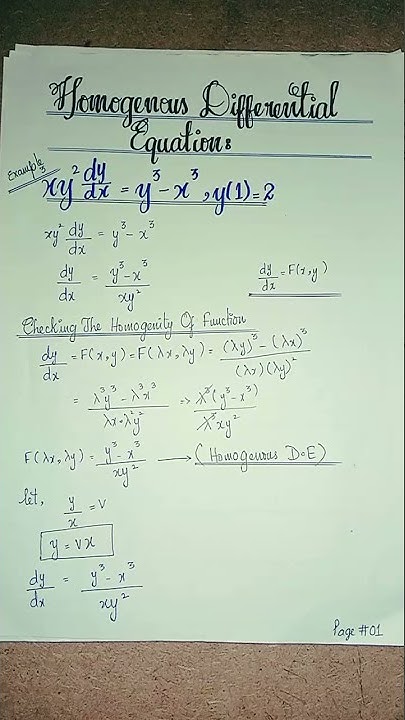 Homogenous Differential
Equation:
Example
xy² dy/dx = y³ - x³, y(1) = 2
xy² dy/dx = y³ - x³
dy/dx = (y³ - x³)/(xy²)
dy/dx = F(x, y)
Checking The Homogenity Of Function
dy/dx = F(x, y) = F(λx, λy) = ((λy)³ - (λx)³)/((λx)(λy)²)
= (λ³y³ - λ³x³)/(λx·λ²y²) => λ³(y³ - x³)/(λ³xy²)
F(λx, λy) = (y³ - x³)/(xy²) → (Homogenous D.E)
let, y/x = v
y = vx
dy/dx = (y³ - x³)/(xy²)
Page #01